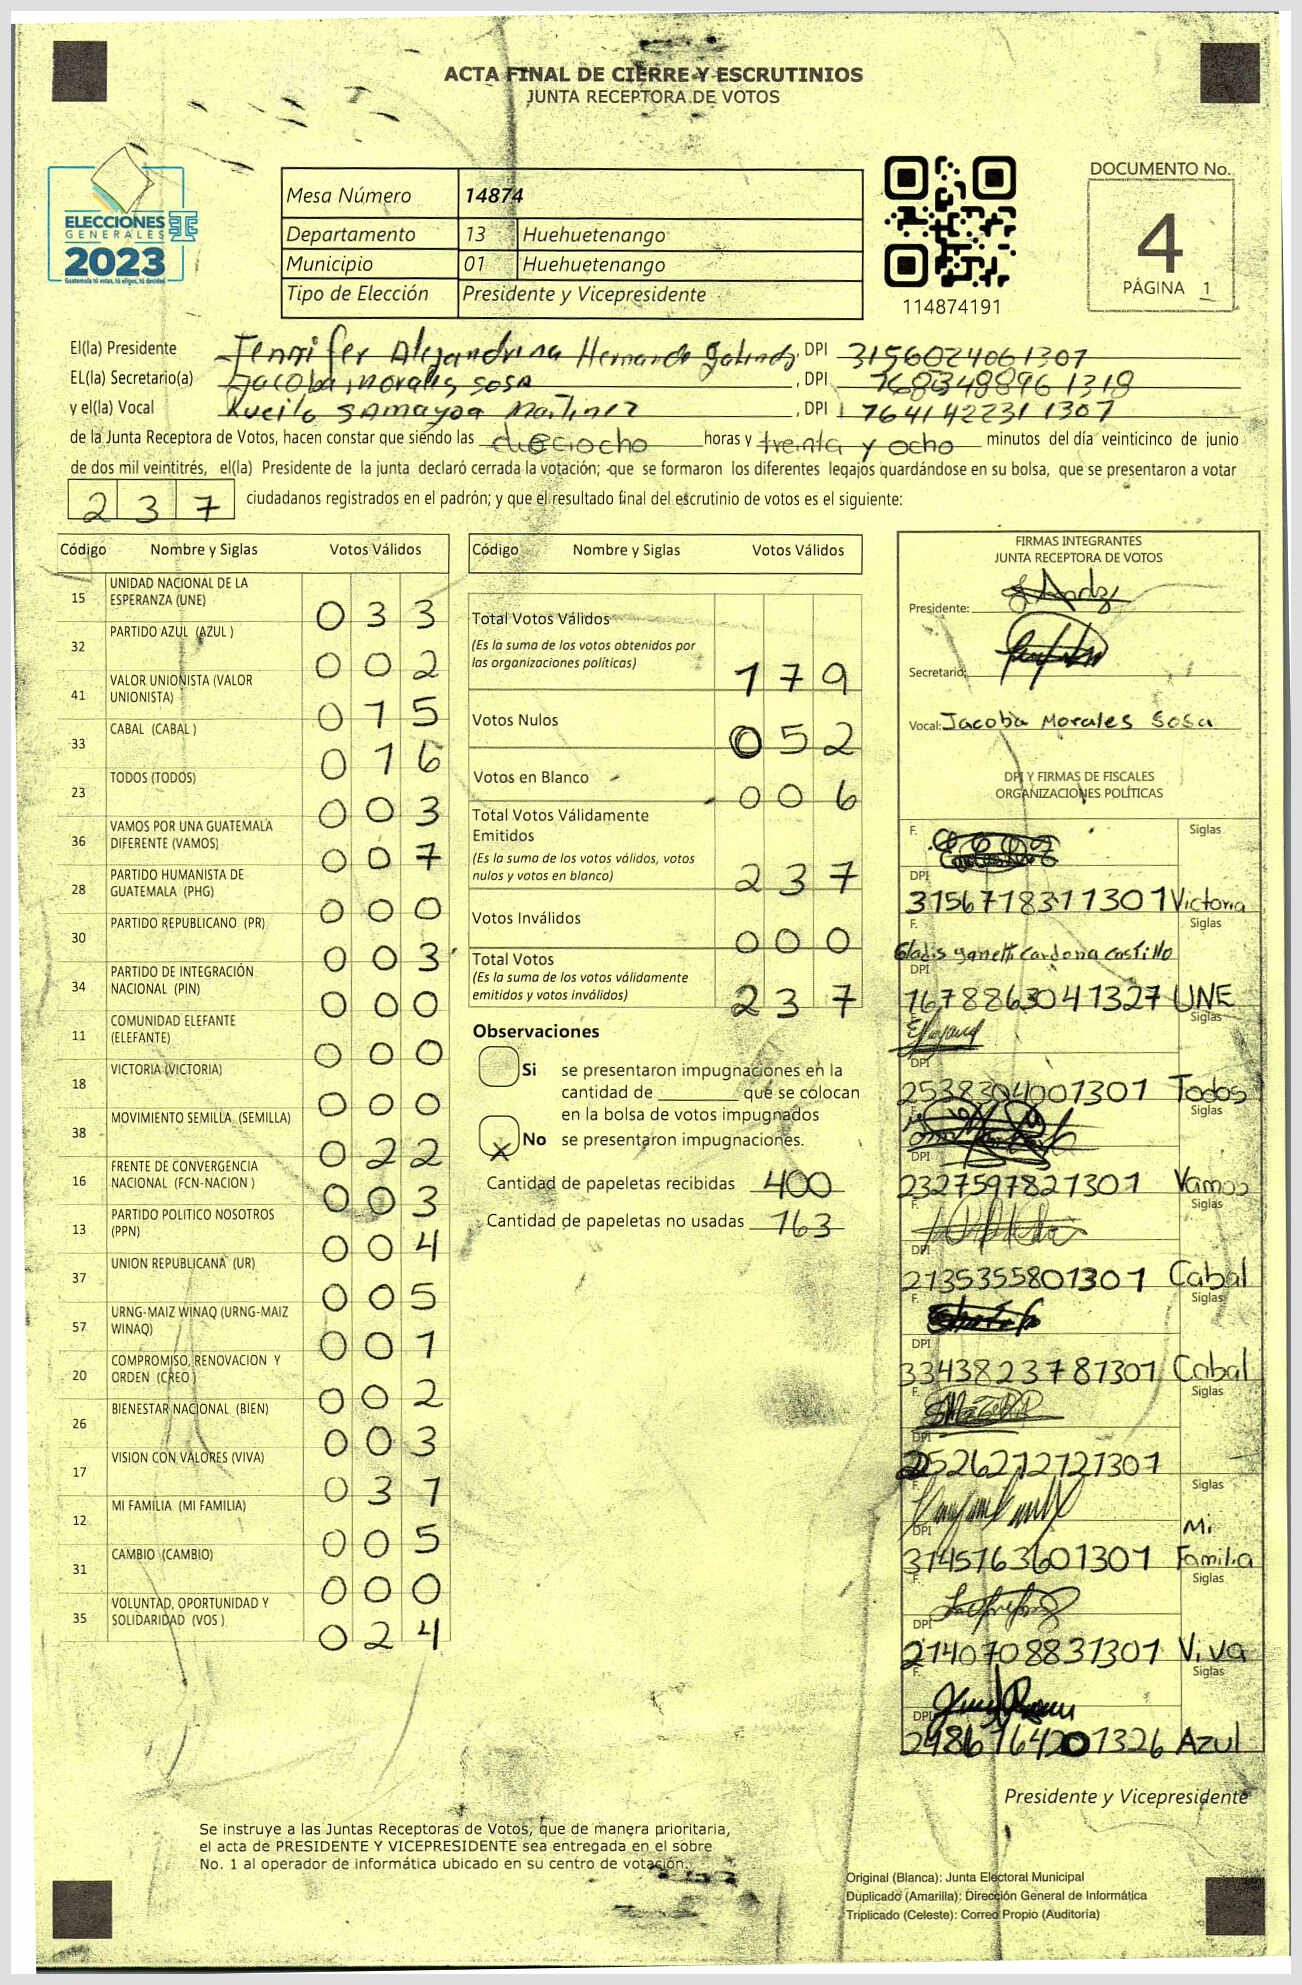 ACTA FINAL DE CIERRE Y ESCRUTINIOS
JUNTA RECEPTORA DE VOTOS
ELECCIONES
GENERALES
2023
Guatemala tú votas, tú eliges, tú decides
Mesa Número 14874
Departamento 13 Huehuetenango
Municipio 01 Huehuetenango
Tipo de Elección Presidente y Vicepresidente
114874191
DOCUMENTO No.
4
PÁGINA 1
El(la) Presidente Jennifer Alejandrina Hernandez Galindo, DPI 3156024061307
EL(la) Secretario(a) Jacoba morales sosa, DPI 1683488961318
y el(la) Vocal Lucila Samayoa Martinez, DPI 1764142231307
de la Junta Receptora de Votos, hacen constar que siendo las dieciocho horas y treinta y ocho minutos del día veinticinco de junio
de dos mil veintitrés, el(la) Presidente de la junta declaró cerrada la votación; que se formaron los diferentes legajos guardándose en su bolsa, que se presentaron a votar
237 ciudadanos registrados en el padrón; y que el resultado final del escrutinio de votos es el siguiente:
Código Nombre y Siglas Votos Válidos
15 UNIDAD NACIONAL DE LA ESPERANZA (UNE) 033
32 PARTIDO AZUL (AZUL ) 002
41 VALOR UNIONISTA (VALOR UNIONISTA) 015
33 CABAL (CABAL ) 016
23 TODOS (TODOS) 003
36 VAMOS POR UNA GUATEMALA DIFERENTE (VAMOS) 007
28 PARTIDO HUMANISTA DE GUATEMALA (PHG) 000
30 PARTIDO REPUBLICANO (PR) 003
34 PARTIDO DE INTEGRACIÓN NACIONAL (PIN) 000
11 COMUNIDAD ELEFANTE (ELEFANTE) 000
18 VICTORIA (VICTORIA) 000
38 MOVIMIENTO SEMILLA (SEMILLA) 022
16 FRENTE DE CONVERGENCIA NACIONAL (FCN-NACION ) 003
13 PARTIDO POLITICO NOSOTROS (PPN) 004
37 UNION REPUBLICANA (UR) 005
57 URNG-MAIZ WINAQ (URNG-MAIZ WINAQ) 001
20 COMPROMISO, RENOVACION Y ORDEN (CREO ) 002
26 BIENESTAR NACIONAL (BIEN) 003
17 VISION CON VALORES (VIVA) 031
12 MI FAMILIA (MI FAMILIA) 005
31 CAMBIO (CAMBIO) 000
35 VOLUNTAD, OPORTUNIDAD Y SOLIDARIDAD (VOS ) 024
Código Nombre y Siglas Votos Válidos
Total Votos Válidos 179
(Es la suma de los votos obtenidos por
las organizaciones políticas)
Votos Nulos 052
Votos en Blanco 006
Total Votos Válidamente
Emitidos 237
(Es la suma de los votos válidos, votos
nulos y votos en blanco)
Votos Inválidos 000
Total Votos 237
(Es la suma de los votos válidamente
emitidos y votos inválidos)
Observaciones
Si se presentaron impugnaciones en la
cantidad de ________ que se colocan
en la bolsa de votos impugnados
X No se presentaron impugnaciones.
Cantidad de papeletas recibidas 400
Cantidad de papeletas no usadas 163
FIRMAS INTEGRANTES
JUNTA RECEPTORA DE VOTOS
Presidente:
Secretario:
Vocal: Jacoba Morales Sosa
DPI Y FIRMAS DE FISCALES
ORGANIZACIONES POLÍTICAS
F. Siglas
DPI
3156718311301 Victoria
F. Siglas
Gladis Yanett Cardona Castillo
DPI
1678863041327 UNE
Siglas
DPI
2538304001301 Todos
Siglas
DPI
2327597821301 Vamos
F. Siglas
DPI
2135355801301 Cabal
F. Siglas
DPI
3343823781301 Cabal
F. Siglas
DPI
2526212721301
F. Siglas
DPI
3145163601301 Mi Familia
F. Siglas
DPI
2140708831301 Viva
F. Siglas
DPI
2986164201326 Azul
Presidente y Vicepresidente
Se instruye a las Juntas Receptoras de Votos, que de manera prioritaria,
el acta de PRESIDENTE Y VICEPRESIDENTE sea entregada en el sobre
No. 1 al operador de informática ubicado en su centro de votación.
Original (Blanca): Junta Electoral Municipal
Duplicado (Amarilla): Dirección General de Informática
Triplicado (Celeste): Correo Propio (Auditoría)